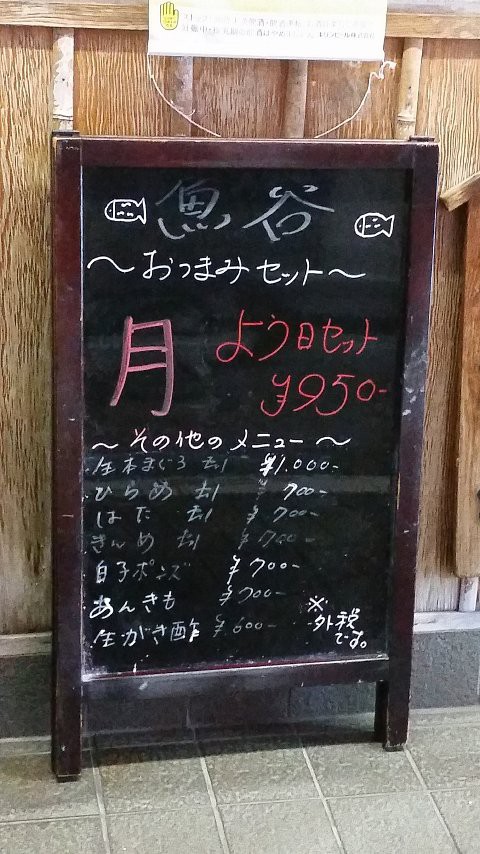 魚谷
～おつまみセット～
月 よう日セット
¥950-
～その他のメニュー～
生本まぐろ 刺 ¥1.000-
ひらめ 刺 ¥700-
はた 刺 ¥700-
きんめ 刺 ¥700-
白子ポンズ ¥700-
あんきも ¥700-
生がき酢 ¥600-
※外税
です。